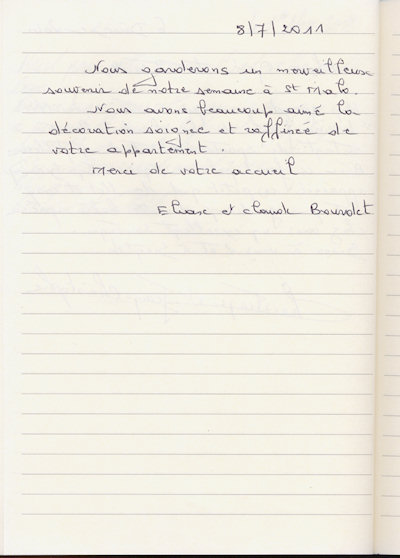 8/7/2011
Nous garderons un merveilleux
souvenir de notre semaine à St Malo.
Nous avons beaucoup aimé la
décoration soignée et raffinée de
votre appartement.
Merci de votre accueil
et Claude